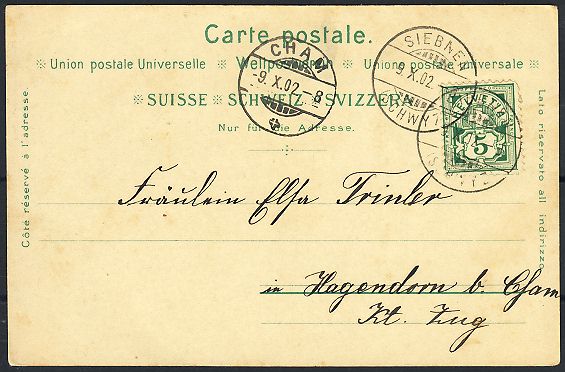 Carte postale.
✻ Union postale Universelle ✻ Weltpostverein ✻ Unione postale universale ✻
✻ SUISSE ✻ SCHWEIZ ✻ SVIZZERA ✻
Nur für die Adresse.
Côté réservé à l'adresse
Lato riservato all indirizzo
CHAM
-9. X. 02. -8
SIEBNEN
9. X. 02
(SCHWYZ)
HELVETIA
5
Fräulein Elsa Trinler
in Hagendorn b. Cham
Kt. Zug